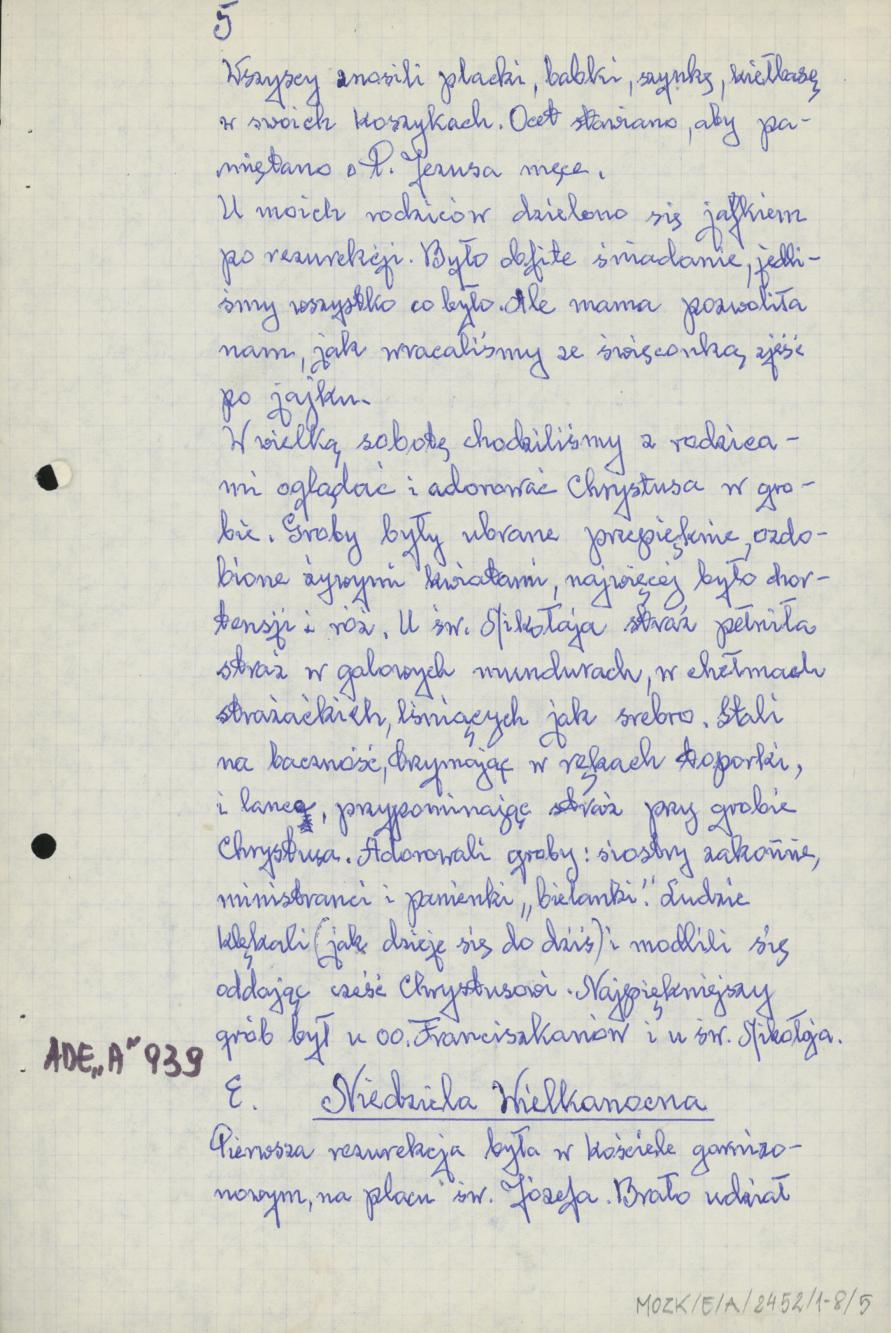 5
Wszyscy znosili placki, babki, szynkę, kiełbasę
w swoich koszykach. Ocet stawiano, aby pa-
miętano o P. Jezusa męce.
U moich rodziców dzielono się jajkiem
po rezurekcji. Było obfite śniadanie, jedli-
śmy wszystko co było. Ale mama pozwoliła
nam, jak wracaliśmy ze święconką zjeść
po jajku.
W wielką sobotę chodziliśmy z rodzica-
mi oglądać i adorować Chrystusa w gro-
bie. Groby były ubrane przepięknie, ozdo-
bione żywymi kwiatami, najwięcej było hor-
tensji i róż. U św. Mikołaja straż pełniła
straż w galowych mundurach, w chełmach
strażackich, lśniących jak srebro. Stali
na baczność, trzymając w rękach toporki,
i lance, przypominając straż przy grobie
Chrystusa. Adorowali groby: siostry zakonne,
ministranci i panienki „bielanki". Ludzie
klękali (jak dzieje się do dziś) i modlili się
oddając cześć Chrystusowi. Najpiękniejszy
grób był u OO. Franciszkanów i u św. Mikołaja.
ADE„A" 939
E. Niedziela Wielkanocna
Pierwsza rezurekcja była w kościele garnizo-
nowym, na placu św. Józefa. Brało udział
MOZK/E/A/2452/1-8/5